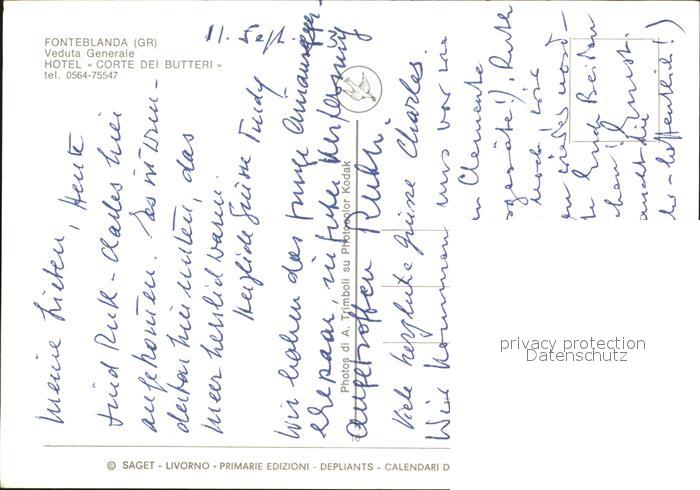 FONTEBLANDA (GR)
Veduta Generale
HOTEL « CORTE DEI BUTTERI »
tel. 0564-75547
11. Sept.
Meine Lieben, Heute
sind Ruth-Charles hier
angekommen. Es ist wun-
derbar hier unten, das
Meer herrlich warm.
Herzliche Grüsse Trudy
Wir haben das junge
Ehepaar, in guter Verfassung
angetroffen Ruthi
Viele herzliche Grüsse Charles.
Wir kommen uns vor wie
in Clemente
Ruth
noch wie
wieder nord-
Euch Beiden
hoffentlich!)
Photos di A. Trimboli su Photocolor Kodak
© SAGET - LIVORNO - PRIMARIE EDIZIONI - DEPLIANTS - CALENDARI D
privacy protection
Datenschutz